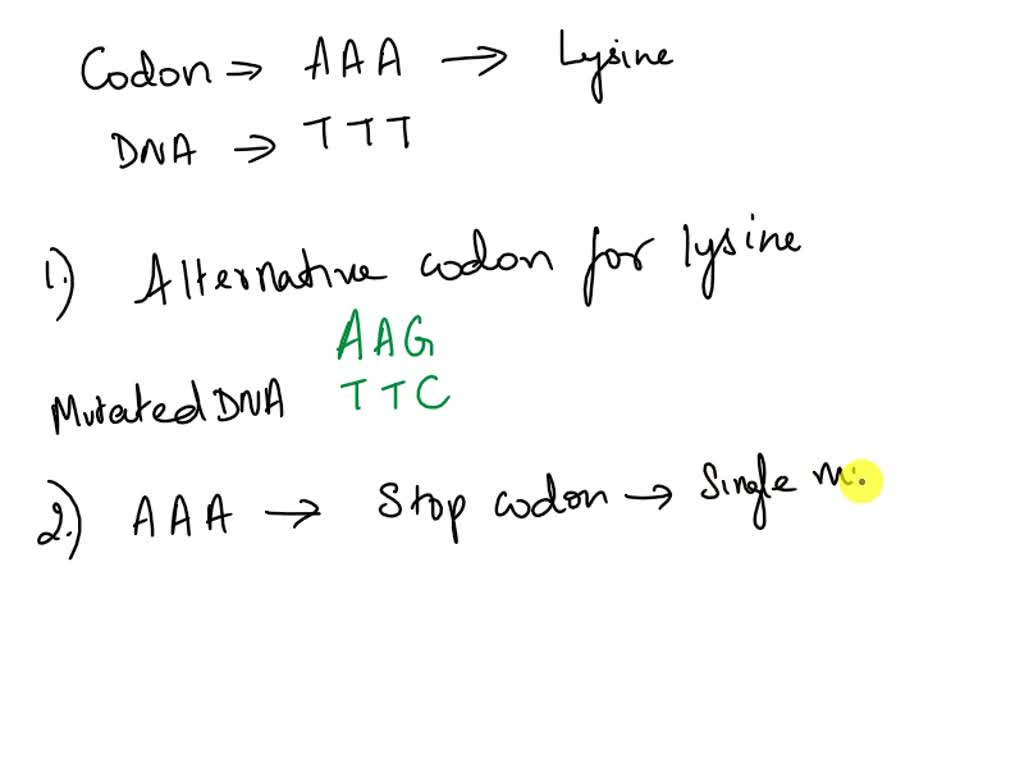 Codon ⇒ AAA → Lysine
DNA → TTT
1.) Alternative codon for lysine
AAG
Mutated DNA TTC
2.) AAA → Stop codon → Single